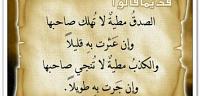 قديما قالوا
الصدقُ مطيةٌ لا تُهلك صاحبها
وإن عَثرت به قليلاً
والكذبُ مطيةٌ لا تُنجي صاحبها
وإن جَرت به طويلاً.